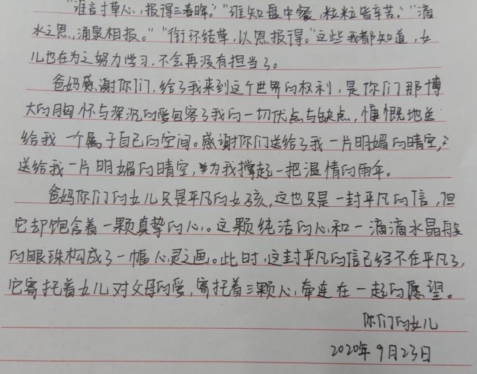 “谁言寸草心,报得三春晖。”“谁知盘中餐,粒粒皆辛苦。”“滴
水之恩,涌泉相报。”“衔环结草,以恩报得。”这些我都知道,女
儿也在为之努力学习,不会再没有担当了。
爸妈感谢你们,给了我来到这个世界的权利,是你们那博
大的胸怀与深沉的爱包容了我的一切优点与缺点,慷慨地并
给我一个属于自己的空间。感谢你们送给了我一片明媚的晴空,
送给我一片明媚的晴空,为我撑起一把温情的雨伞。
爸妈你们的女儿只是平凡的女孩,这也只是一封平凡的信,但
它却饱含着一颗真挚的心。这颗纯洁的心和一滴滴水晶般
的眼珠构成了一幅心灵之画。此时,这封平凡的信已经不在平凡了,
它寄托着女儿对父母的爱,寄托着三颗心牵连在一起的愿望。
你们的女儿
2020年9月23日